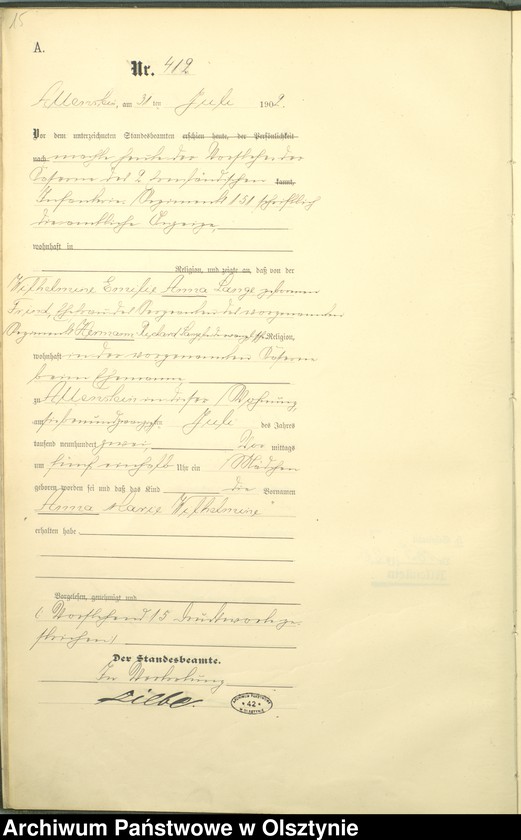 15
A.
Nr. 412
Allenstein, am 31 ten Juli 1902.
Vor dem unterzeichneten Standesbeamten erschien heute, der Persönlichkeit
nach machte heute der Vorsteher der
Kaserne des 2 ermländischen kannt,
Infanterie Regiments 151 schriftlich
dienstliche Anzeige,
wohnhaft in
Religion, und zeigte an, daß von der
Wilhelmine Emilie Anna Lange geborenen
Ehefrau des Sergeanten des vorgenannten
Regiments Hermann Religion,
wohnhaft in der vorgenannten Kaserne
beim Ehemanne,
zu Allenstein in dieser Wohnung,
am sechsundzwanzigsten Juli des Jahres
tausend neunhundert zwei, Vor mittags
um fünf einhalb Uhr ein Mädchen
geboren worden sei und daß das Kind die Vornamen
Anna Marie Wilhelmine
erhalten habe
Vorgelesen, genehmigt und
(Vorstehend 15 Druckworte ge-
strichen)
Der Standesbeamte.
In Vertretung
42
Archiwum Państwowe w Olsztynie